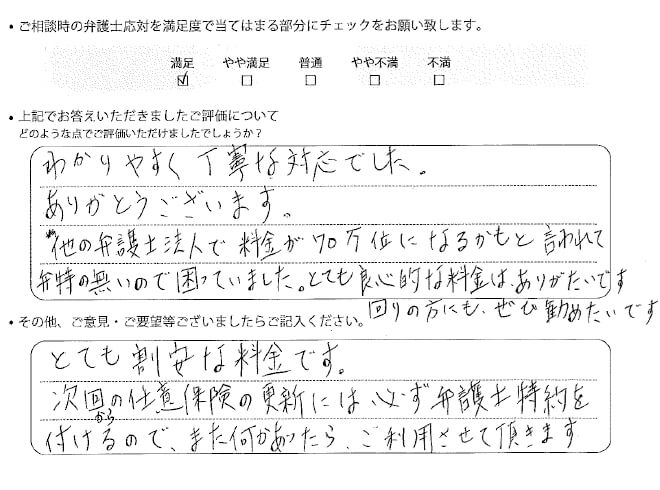 ・ご相談時の弁護士応対を満足度で当てはまる部分にチェックをお願い致します。
満足 やや満足 普通 やや不満 不満
☑ □ □ □ □
・上記でお答えいただきましたご評価について
どのような点でご評価いただけましたでしょうか？
わかりやすく丁寧な対応でした。
ありがとうございます。
他の弁護士法人で料金が70万位になるかもと言われて
弁特の無いので困っていました。とても良心的な料金は、ありがたいです
回りの方にも、ぜひ勧めたいです
・その他、ご意見・ご要望等ございましたらご記入ください。
とても割安な料金です。
次回の任意保険の更新には必ず弁護士特約を
から
付けるので、また何かあったら、ご利用させて頂きます